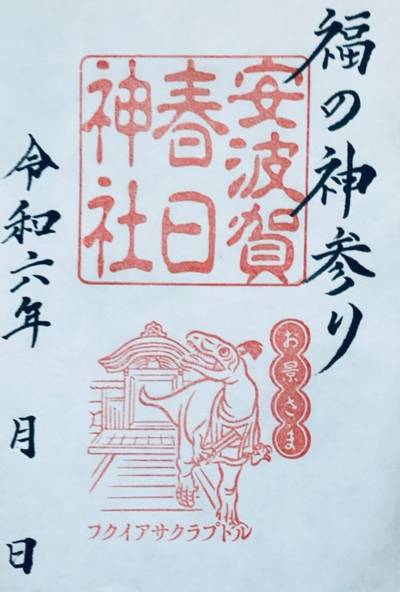 福の神参り
安波賀
春日
神社
お景さま
フクイアサクラプトル
令和六年 月 日